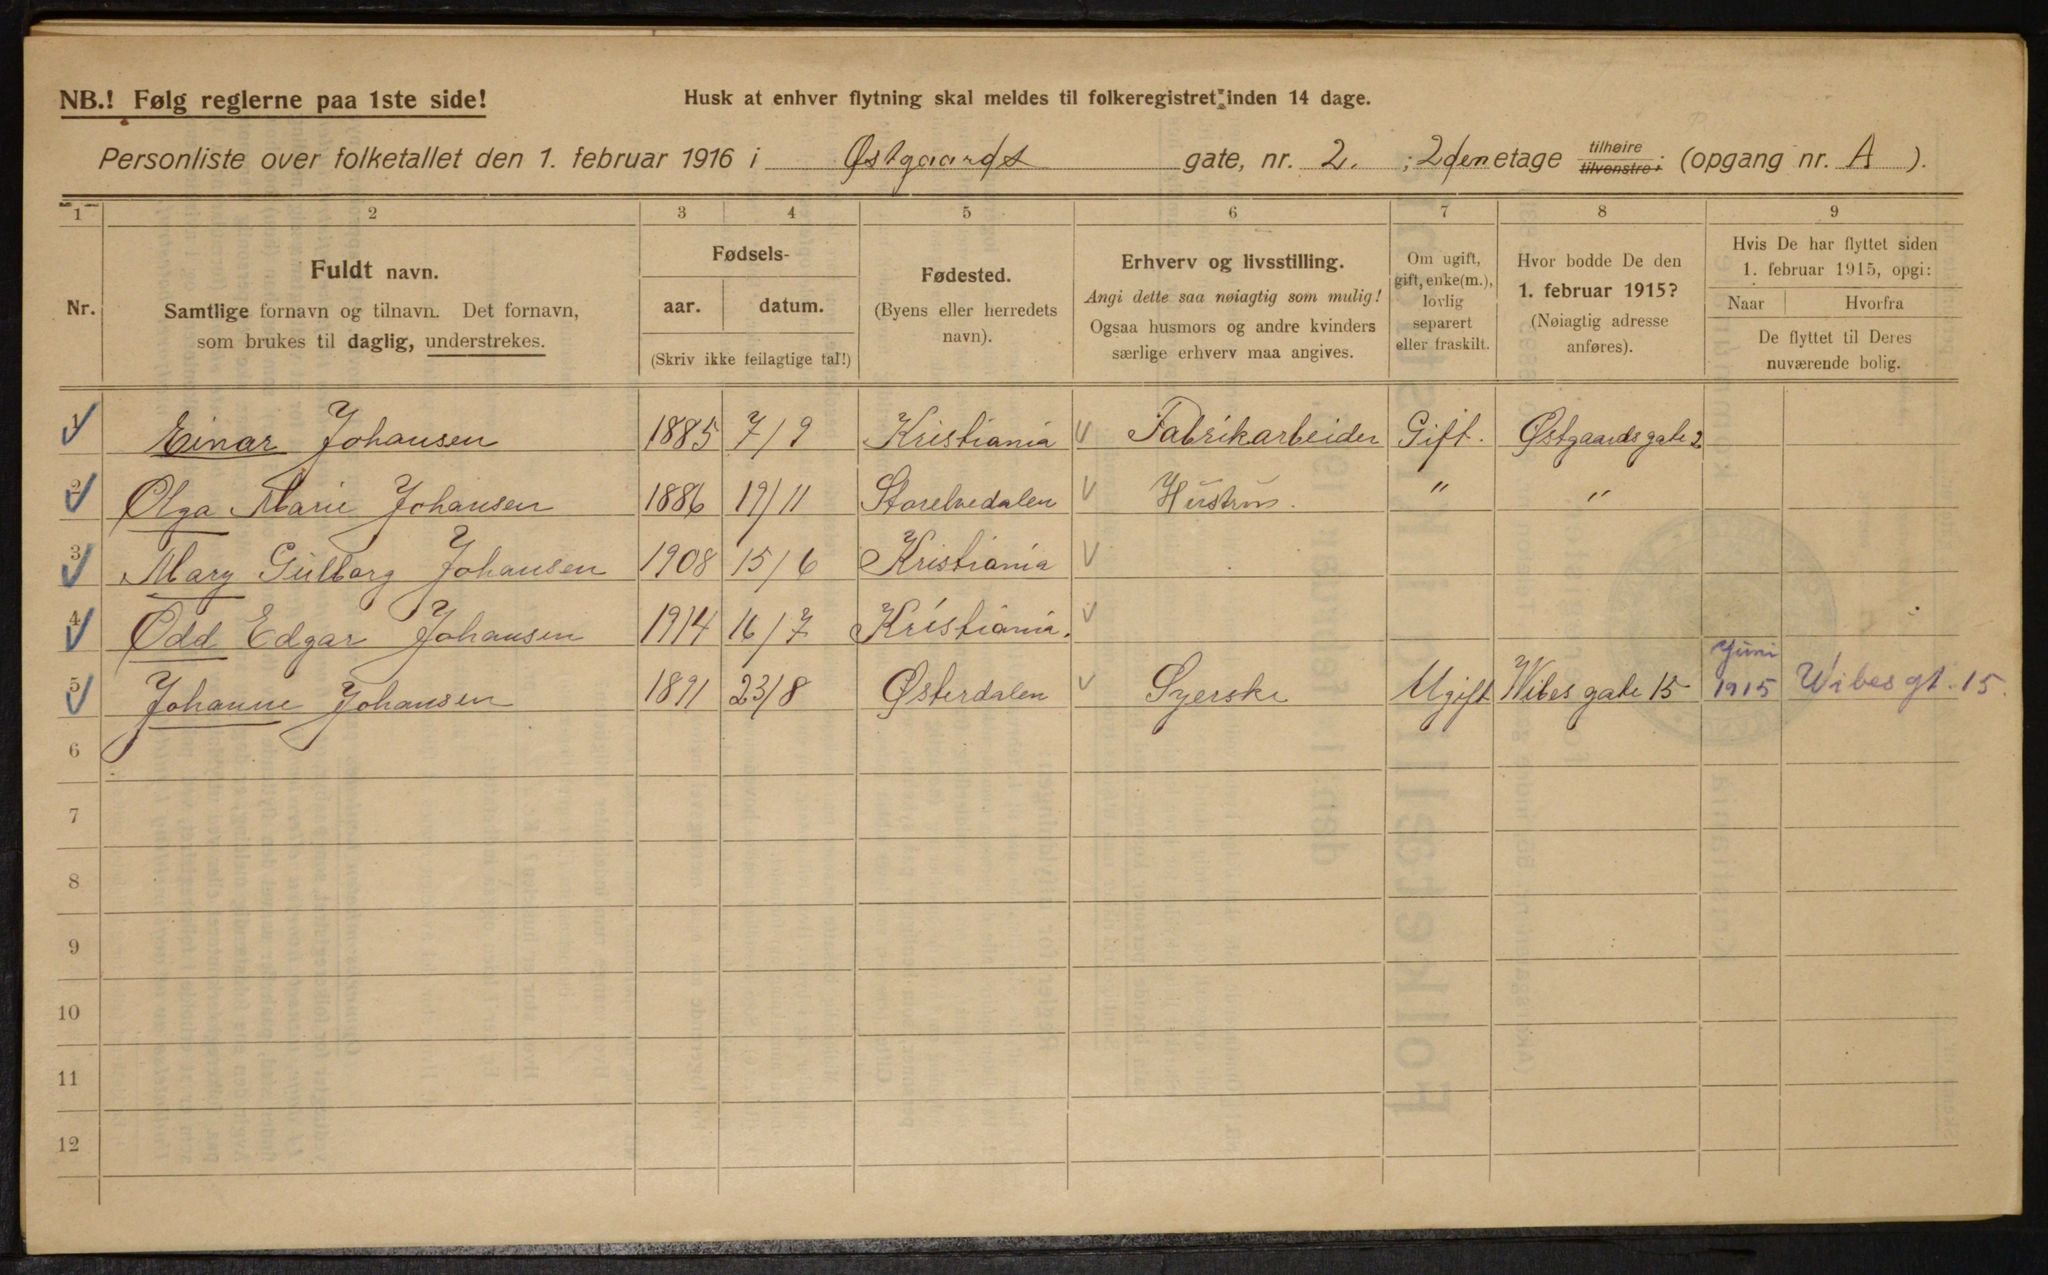 NB.! Følg reglerne paa 1ste side!
Husk at enhver flytning skal meldes til folkeregistret inden 14 dage.
Personliste over folketallet den 1. februar 1916 i Østgaards gate, nr. 2. ; 2den etage tilhøire tilvenstre; (opgang nr. A ).
1 2 3 4 5 6 7 8 9
Nr.
Fuldt navn.
Samtlige fornavn og tilnavn. Det fornavn,
som brukes til daglig, understrekes.
Fødsels-
aar. datum.
(Skriv ikke feilagtige tal!)
Fødested.
(Byens eller herredets
navn).
Erhverv og livsstilling.
Angi dette saa nøiagtig som mulig!
Ogsaa husmors og andre kvinders
særlige erhverv maa angives.
Om ugift,
gift, enke(m.),
lovlig
separert
eller fraskilt.
Hvor bodde De den
1. februar 1915?
(Nøiagtig adresse
anføres).
Hvis De har flyttet siden
1. februar 1915, opgi:
Naar Hvorfra
De flyttet til Deres
nuværende bolig.
1 Einar Johansen 1885 7/9 Kristiania Fabrikarbeider Gift. Østgaardsgate 2
2 Olga Marie Johansen 1886 19/11 Storelvedalen Hustru. " "
3 Mary Gulborg Johansen 1908 15/6 Kristiania
4 Odd Edgar Johansen 1914 16/7 Kristiania.
5 Johanne Johansen 1891 23/8 Østerdalen Syerske Ugift Wibes gate 15 Juni 1915 Wibes gt. 15.
6
7
8
9
10
11
12